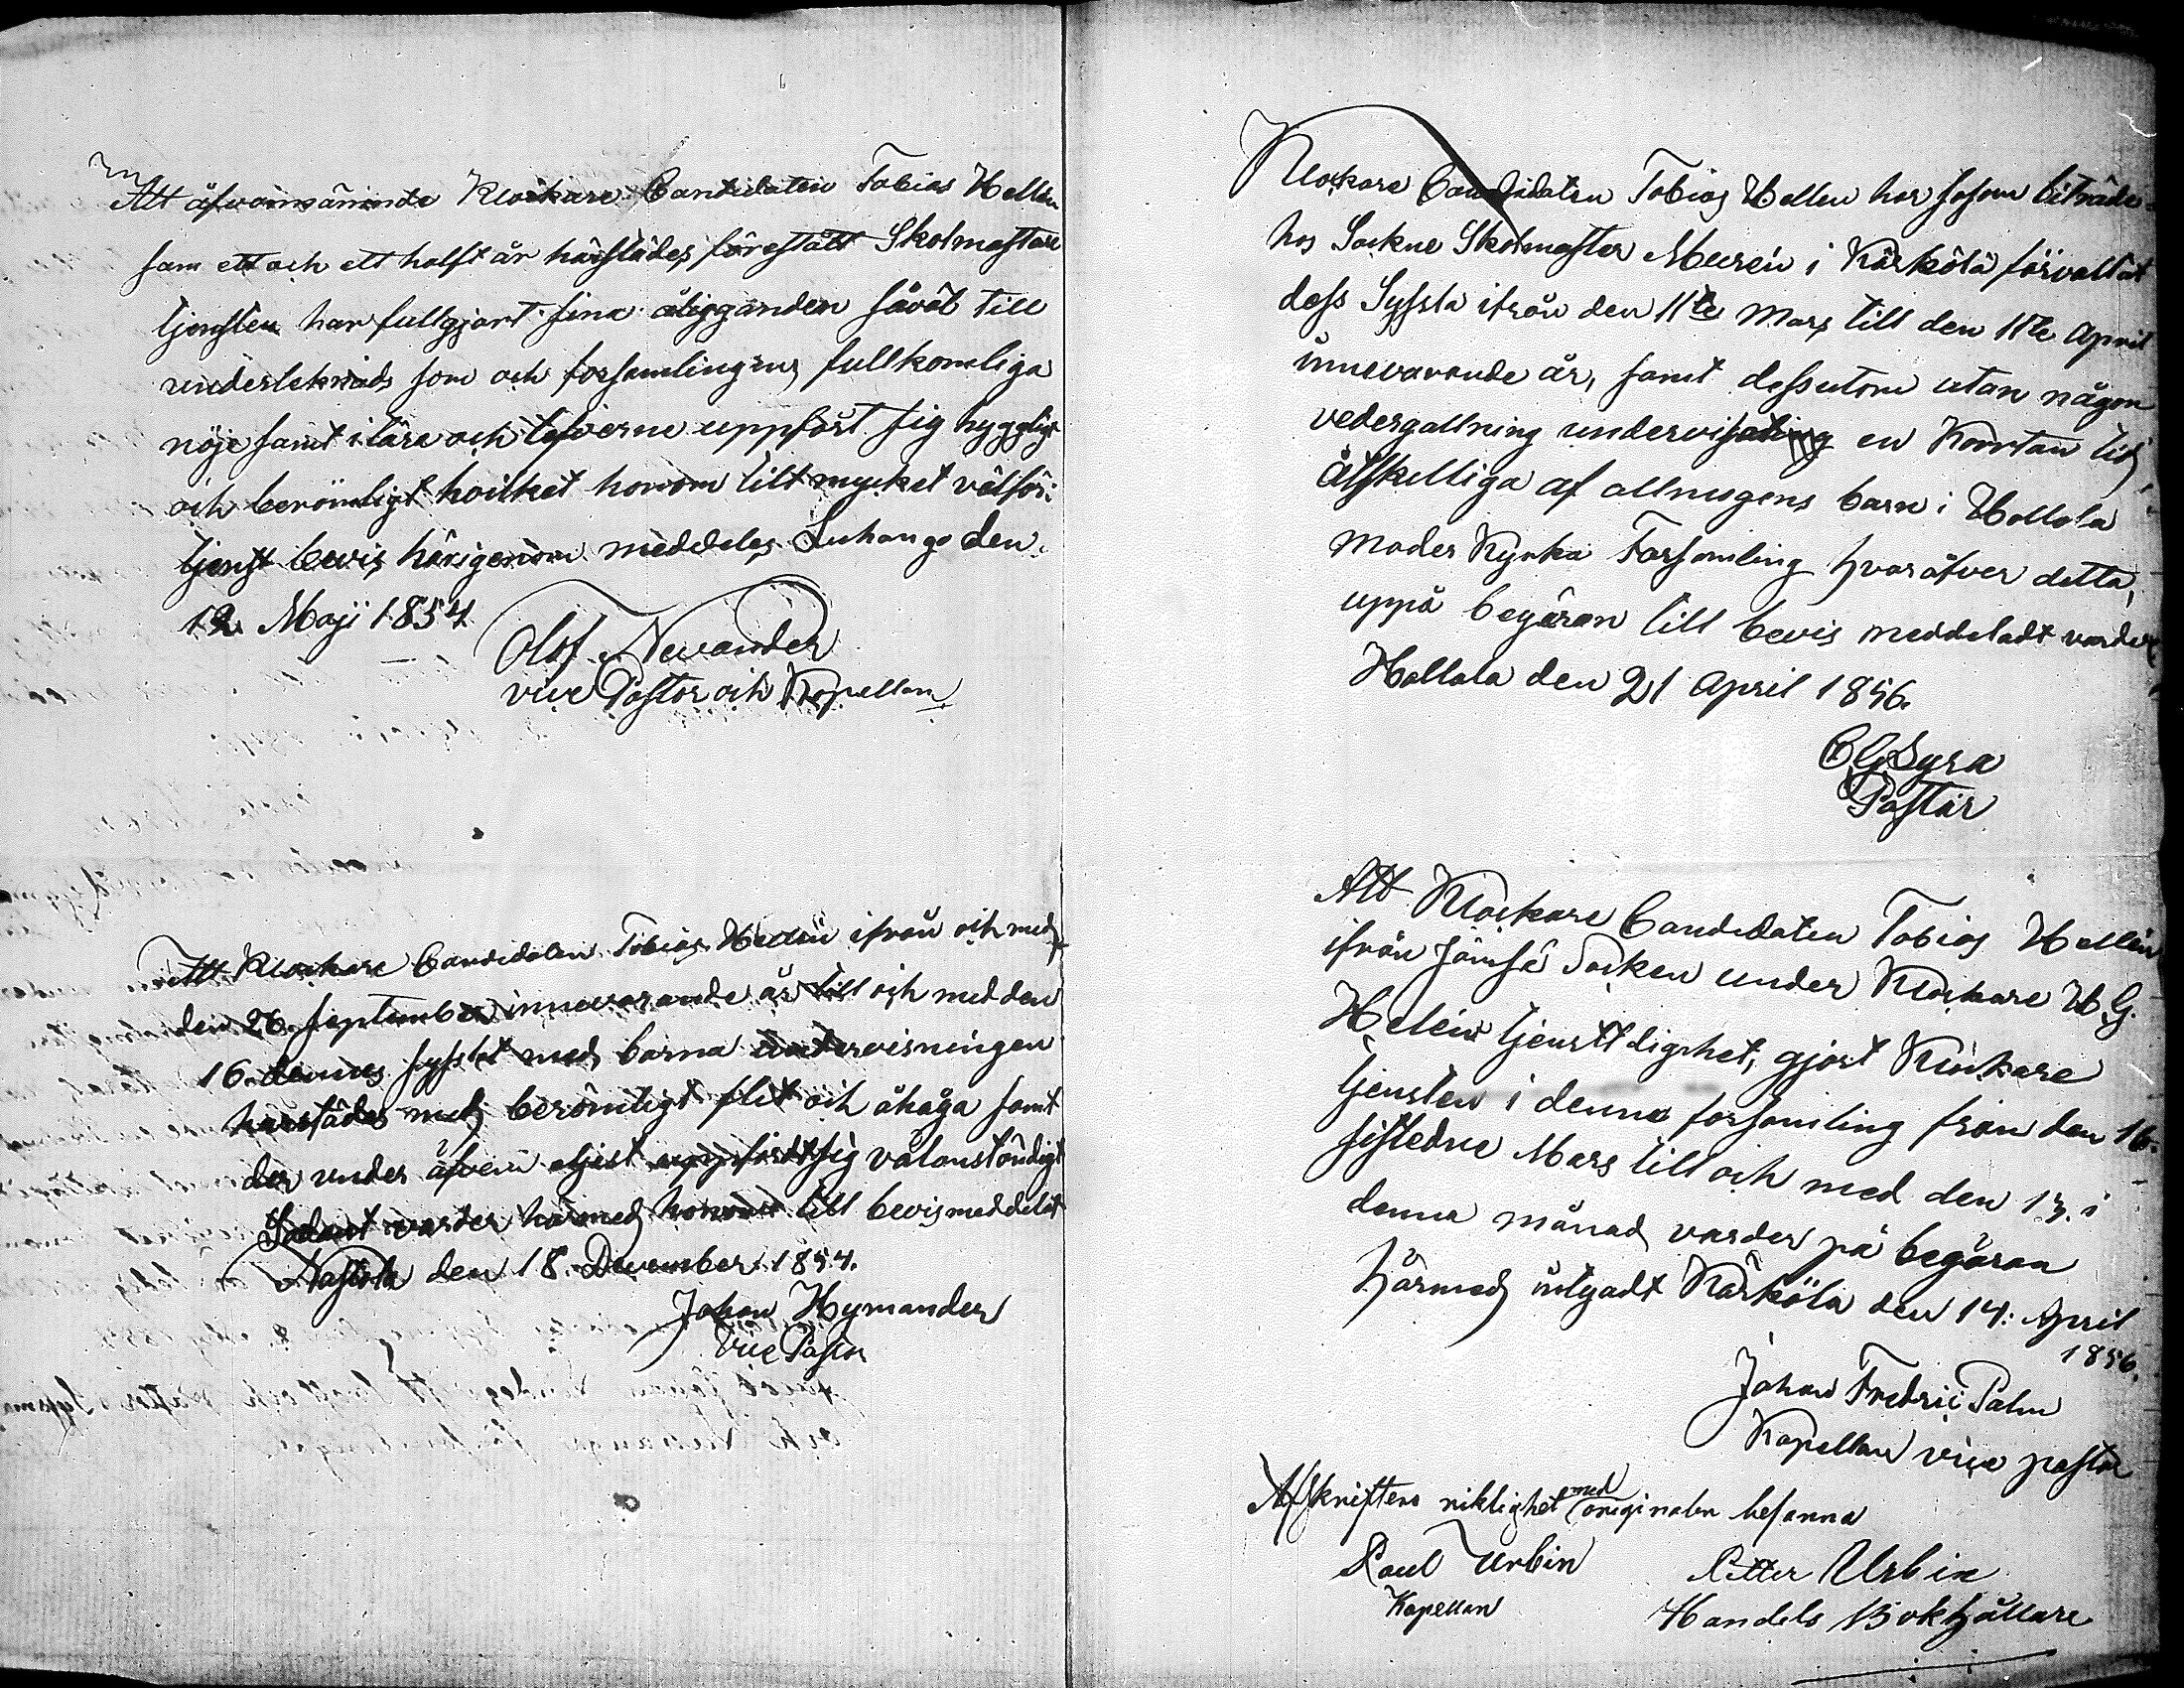 Att åfvannämnde Klockare Candidaten Tobias Hellen
som ett och ett halft år härstädes förestått Skolmästare
tjensten har fullgjort sina åligganden såväl till
underteknads som och församlingens fullkomliga
nöje samt i låra och lefverne uppfört sig hyggligt
och berömligt hvilket honom till mycket välför-
tjent bevis härigenom meddeles Luhango den
12 Maji 1854
Olof Nevander
vice Pastor och Kapellan
Att Klockare Candidaten Tobias Hellen ifrån och med
den 26. September innevarande år till och med den
16. dennes sysslat med barna undervisningen
härstädes med berömligt flit och åhåga samt
der under åfven eljest uppfördt sig välanståndigt
Sådant varder härmed honom till bevis meddelat
Nastola den 18. December 1854.
Johan Hymander
Vice Pastor
Klockare Candidaten Tobias Hellen har såsom biträde
hos Sockne Skolmäster Meurén i Kärkölä förvaltat
dess Syssla ifrån den 11te Mars till den 11te April
innevarande år, samt dessutom utan någon
vedergällning undervisat en Kortan tid
åtskilliga af allmogens barn i Hollola
Moder Kyrka Forsamling hvaröfver detta,
uppå begäran till bevis meddeladt varder,
Hollola den 21 April 1856.
C G Syra
Pastor
Att Klockare Candidaten Tobias Hellén
ifrån Jämsä Socken under Klockare H. G.
Heléns tjenstledighet, gjort Klockare
tjensten i denna forsamling från den 16.
sistledne Mars till och med den 13. i
denna månad varder på begäran
härmed intygadt Kärkölä den 14. April
1856.
Johan Fredric Palm
Kapellan vice pastor
Afskriftens riktighet med originalen besanna
Paul Urbin Petter Urbin
Kapellan Handels Bokhållare